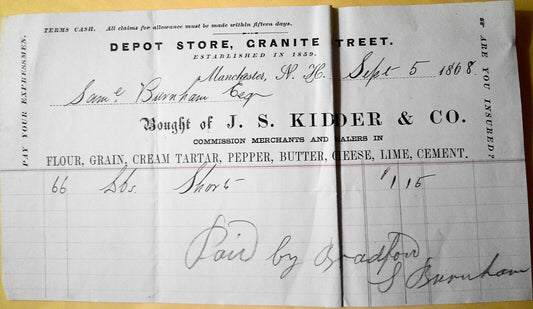 TERMS CASH. All claims for allowance must be made within fifteen days.
DEPOT STORE, GRANITE STREET.
ESTABLISHED IN 1859.
Manchester, N. H. Sept 5 1868.
Saml Burnham Esq
Bought of J. S. KIDDER & CO.
COMMISSION MERCHANTS AND EALERS IN
FLOUR, GRAIN, CREAM TARTAR, PEPPER, BUTTER, CHEESE, LIME, CEMENT.
66 Lbs. Shorts $1 15
Paid by Bradford
S Burnham
PAY YOUR EXPRESSMEN.
ARE YOU INSURED?